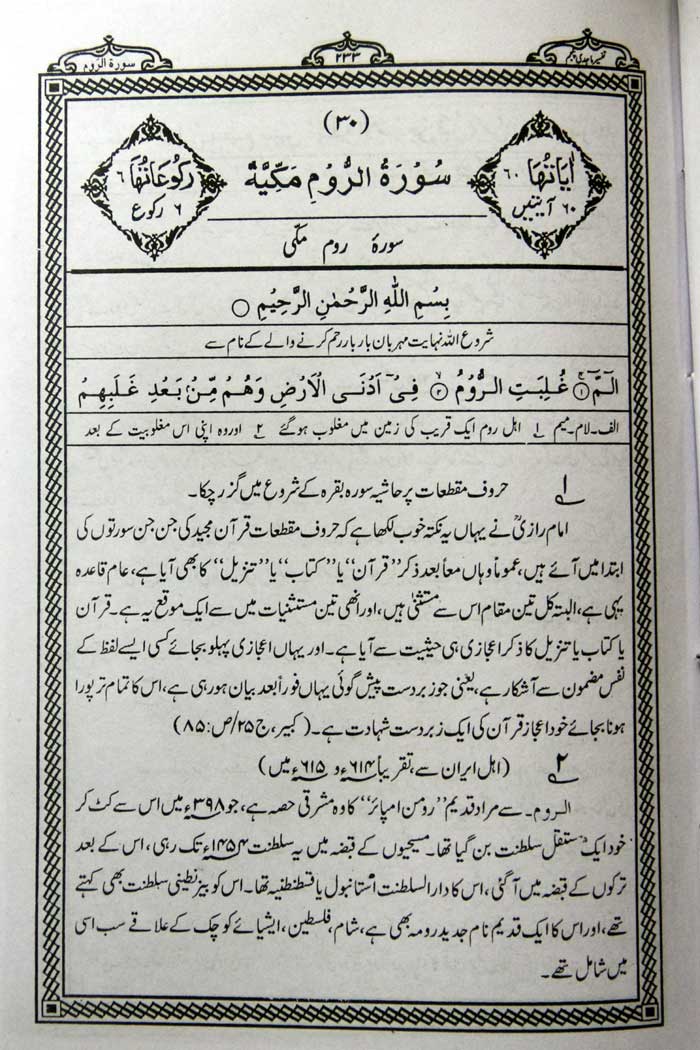 تفسیر ماجدی پنجم
۲۳۳
سورة الروم
(۳۰)
اٰیَاتُهَا ۶۰
۶۰ آیتیں
سُوْرَةُ الرُّوْمِ مَکِّیَّةٌ
رُکُوْعَاتُهَا ۶
۶ رکوع
سورۂ روم مکّی
بِسْمِ اللّٰهِ الرَّحْمٰنِ الرَّحِیْمِ ○
شروع اللہ نہایت مہربان بار بار رحم کرنے والے کے نام سے
الٓمّٓ ۚ﴿۱﴾ غُلِبَتِ الرُّوْمُ ۙ﴿۲﴾ فِیْۤ اَدْنَی الْاَرْضِ وَهُمْ مِّنْۢ بَعْدِ غَلَبِهِمْ
الف۔لام۔میم ۱ اہل روم ایک قریب کی زمین میں مغلوب ہوگئے ۲ اور وہ اپنی اس مغلوبیت کے بعد
۱ حروف مقطعات پر حاشیہ سورہ بقرہ کے شروع میں گزر چکا۔
امام رازیؒ نے یہاں یہ نکتہ خوب لکھا ہے کہ حروف مقطعات قرآن مجید کی جن جن سورتوں کی
ابتدا میں آئے ہیں، عموماً وہاں معاً بعد ذکر ”قرآن“ یا ”کتاب“ یا ”تنزیل“ کا بھی آیا ہے، عام قاعدہ
یہی ہے، البتہ کل تین مقام اس سے مستثنیٰ ہیں، اور انھی تین مستثنیات میں سے ایک موقع یہ ہے۔ قرآن
یا کتاب یا تنزیل کا ذکر اعجازی ہی حیثیت سے آیا ہے۔ اور یہاں اعجازی پہلو بجائے کسی ایسے لفظ کے
نفس مضمون سے آشکار ہے، یعنی جو زبردست پیش گوئی یہاں فوراً بعد بیان ہو رہی ہے، اس کا تمام تر پورا
ہونا بجائے خود اعجاز قرآن کی ایک زبردست شہادت ہے۔ (کبیر، ج۲۵/ص:۸۵)
۲ (اہل ایران سے، تقریباً ۶۱۴ء و ۶۱۵ء میں)
الروم۔ سے مراد قدیم ”رومن امپائر“ کا وہ مشرقی حصہ ہے، جو ۳۹۸ء میں اس سے کٹ کر
خود ایک مستقل سلطنت بن گیا تھا۔ مسیحیوں کے قبضہ میں یہ سلطنت ۱۴۵۴ء تک رہی، اس کے بعد
ترکوں کے قبضہ میں آگئی، اس کا دار السلطنت استانبول یا قسطنطنیہ تھا۔ اس کو بیزنطینی سلطنت بھی کہتے
تھے، اور اس کا ایک قدیم نام جدید رومہ بھی ہے، شام، فلسطین، ایشیائے کوچک کے علاقے سب اسی
میں شامل تھے۔